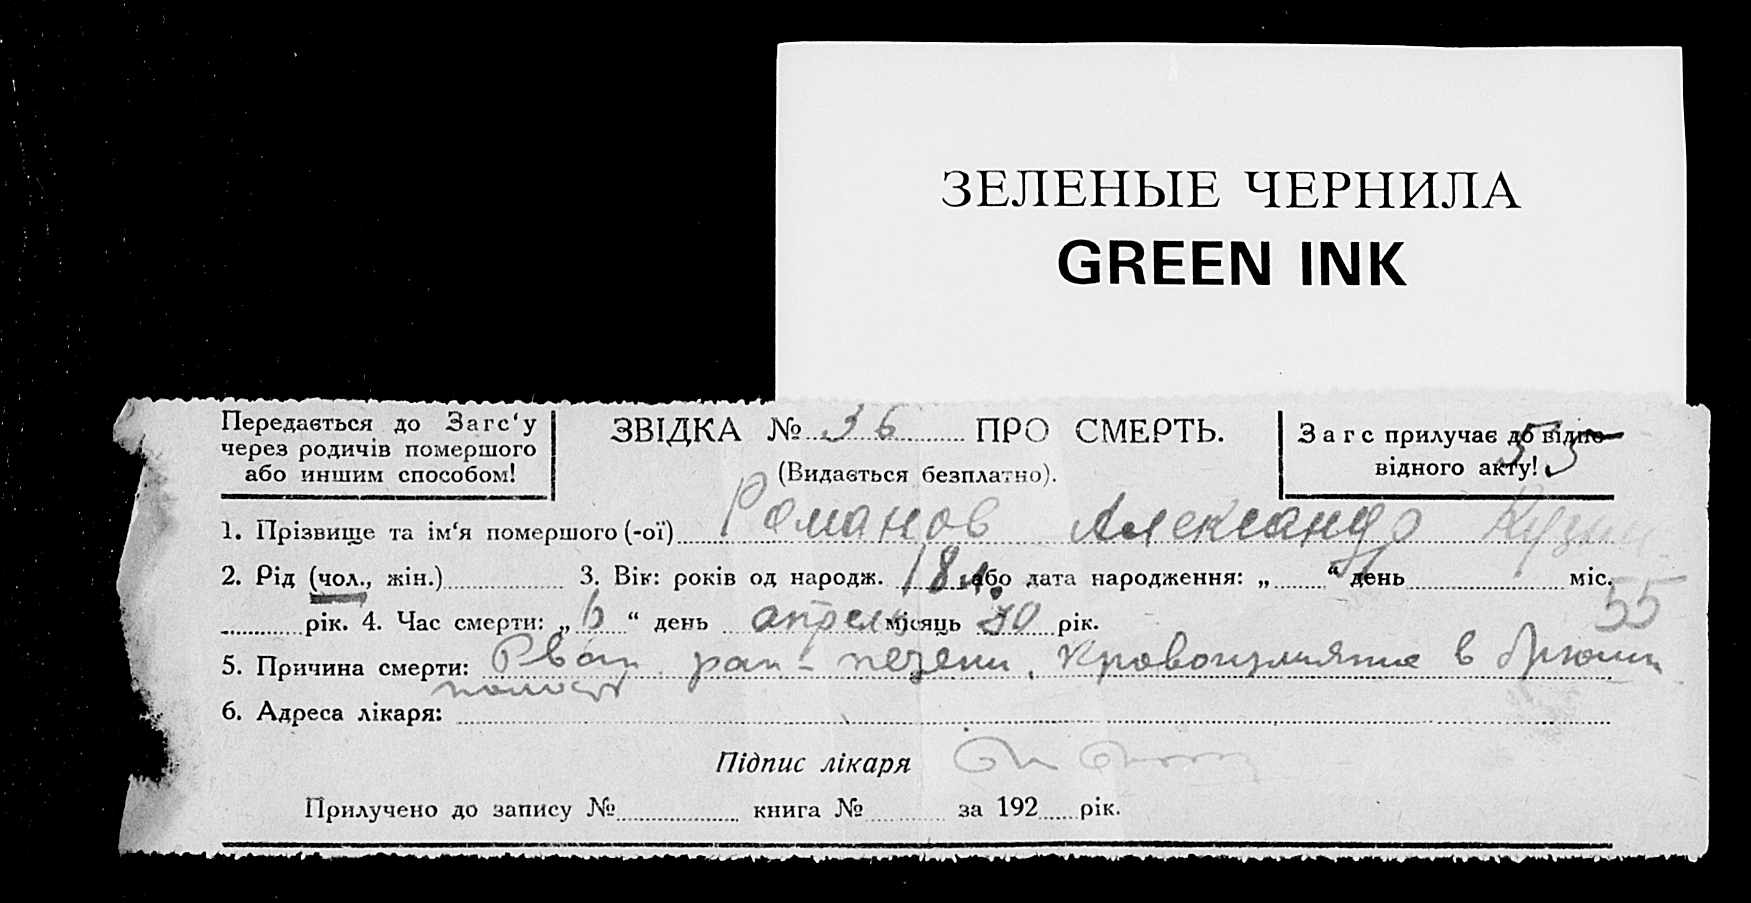 ЗЕЛЕНЫЕ ЧЕРНИЛА
GREEN INK
Передається до Загс‘у
через родичів помершого
або иншим способом!
ЗВІДКА № 36 ПРО СМЕРТЬ.
(Видається безплатно).
Загс прилучає до відпо-
відного акту!
55
1. Прізвище та ім‘я помершого (-ої) Романов Александр
2. Рід (чол., жін.) 3. Вік: років од народж. 18 л. або дата народження: „ “ день міс.
55
рік. 4. Час смерти: „6“ день апреля місяць 30 рік.
5. Причина смерти: Рван. ран- печени. Кровоизлияние в брюшн
полость
6. Адреса лікаря:
Підпис лікаря
Прилучено до запису № книга № за 192 рік.